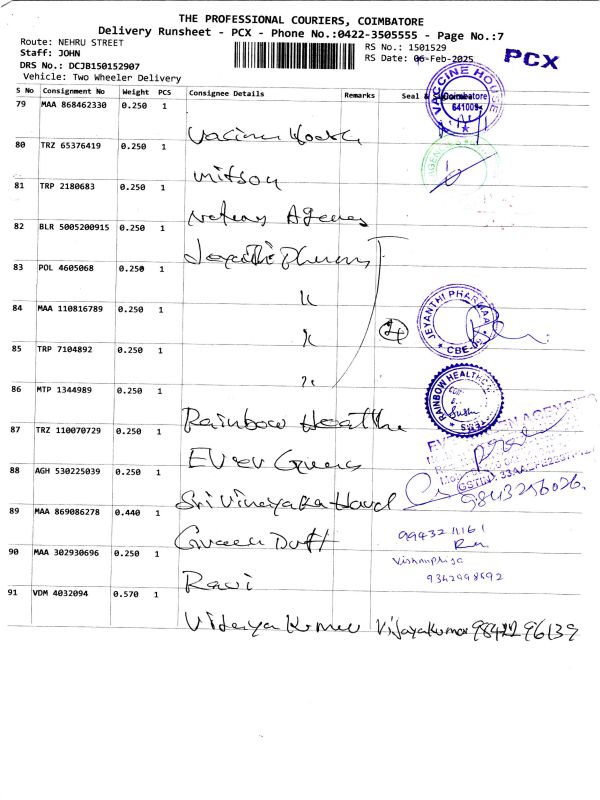 THE PROFESSIONAL COURIERS, COIMBATORE
Delivery Runsheet - PCX - Phone No.:0422-3505555 - Page No.:7
Route: NEHRU STREET
Staff: JOHN
DRS No.: DCJB150152907
Vehicle: Two Wheeler Delivery
RS No.: 1501529
RS Date: 06-Feb-2025
PCX
S No Consignment No Weight PCS Consignee Details Remarks Seal &
VACCINE HOUSE Coimbatore 641009
79 MAA 868462330 0.250 1 Vaccine House
80 TRZ 65376419 0.250 1 Mitson
81 TRP 2180683 0.250 1 Agency
82 BLR 5005200915 0.250 1 Jeyanthi Pharma
83 POL 4605068 0.250 1 "
84 MAA 110816789 0.250 1 " 4
JEYANTHI PHARMAA CBE-
85 TRP 7104892 0.250 1 "
86 MTP 1344989 0.250 1 Rainbow Health
RAINBOW HEALTHCARE
87 TRZ 110070729 0.250 1 Ever Greens
88 AGH 530225039 0.250 1 Sri Vinayaka
9843256026.
89 MAA 869086278 0.440 1 Green
9943211161
90 MAA 302930696 0.250 1 Ravi
Vishnupriya
9342998692
91 VDM 4032094 0.570 1 Vijeya Kumar Vijayakumar 98422 96139